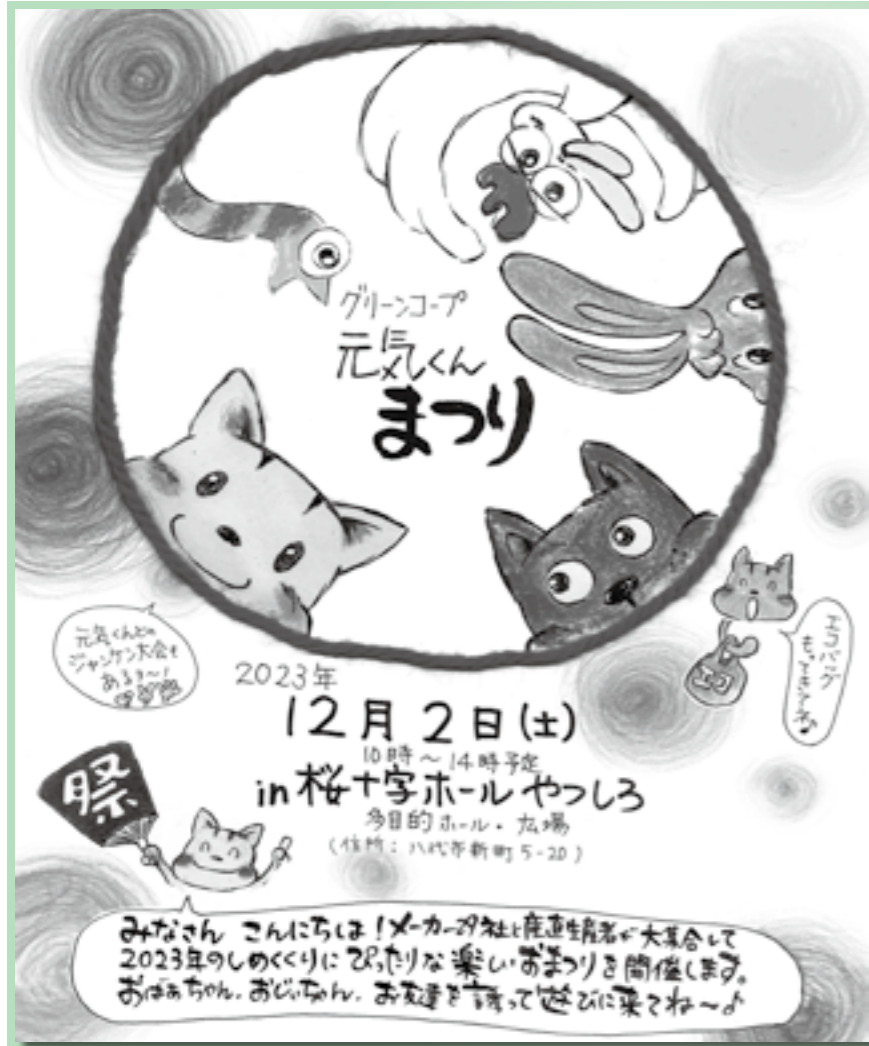 グリーンコープ
元気くん
まつり
元気くんとの
ジャンケン大会も
あるョ〜!
エコバッグ
もってきてネ♪
エコ
2023年
12月2日(土)
10時〜14時予定
in 桜十字ホールやつしろ
多目的ホール・広場
(住所:八代市新町5-20)
祭
みなさん こんにちは!メーカー29社と産直生産者が大集合して
2023年のしめくくりにぴったりな楽しいおまつりを開催します。
おばぁちゃん、おじぃちゃん、お友達を誘って遊びに来てね〜♪